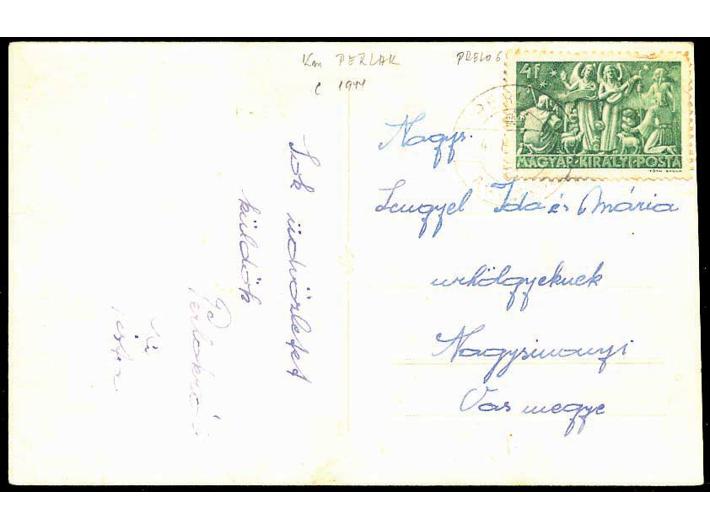 Km PERLAK
1944
PRELOG
4f
MAGYAR·KIRÁLYI·POSTA
Nagys.
Lengyel Ida és Mária
urhölgyeknek
Nagysimonyi
Vas megye
Sok üdvözletet
küldök
Perlakról